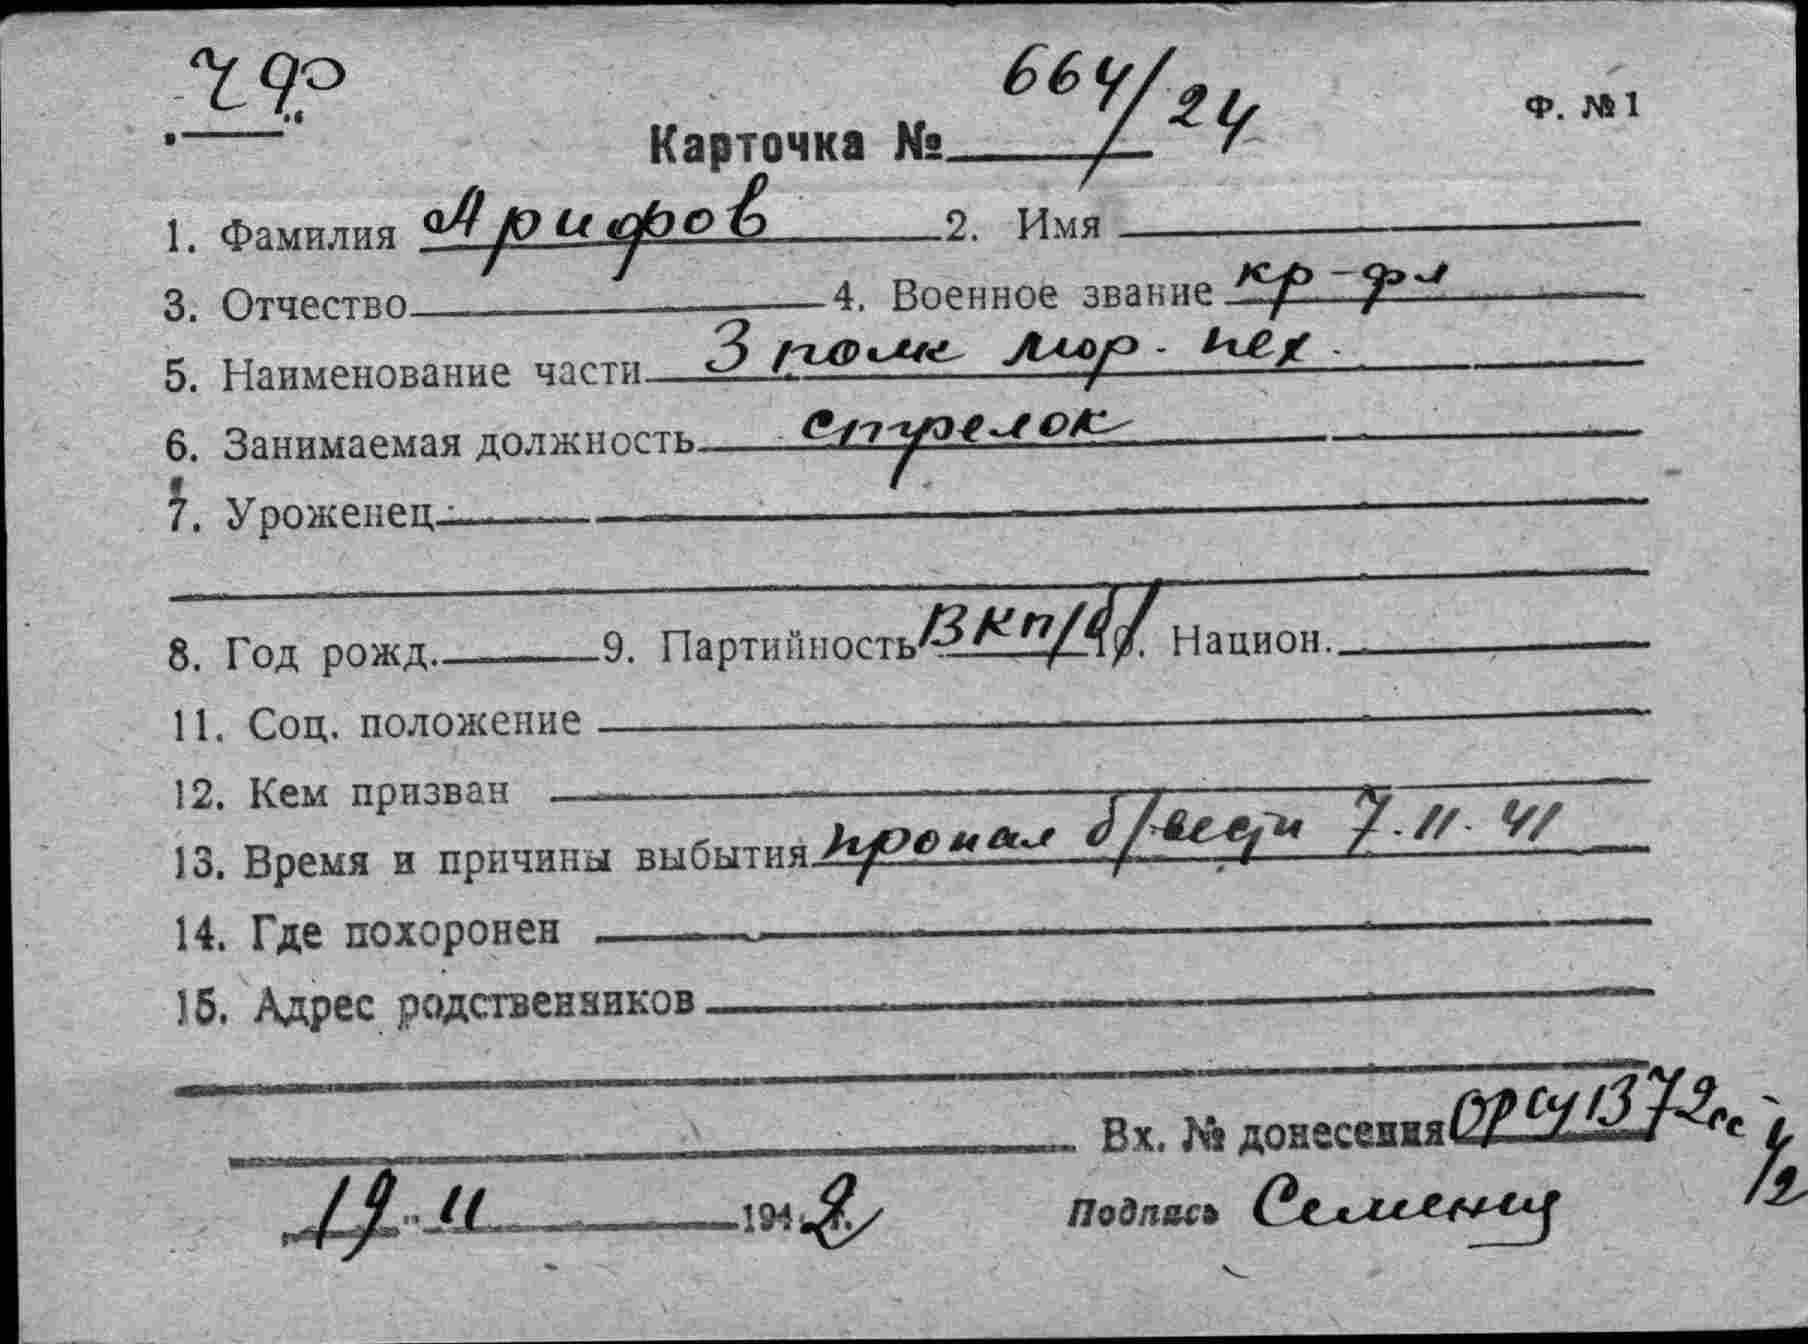 ЧФ
664/24
Ф. №1
Карточка №
1. Фамилия Арифов 2. Имя
3. Отчество 4. Военное звание кр-фл
5. Наименование части 3 полк мор. пех.
6. Занимаемая должность стрелок
7. Уроженец
8. Год рожд. 9. Партийность ВКП/б/ 10. Национ.
11. Соц. положение
12. Кем призван
13. Время и причины выбытия пропал б/вести 7.11.41
14. Где похоронен
15. Адрес родственников
Вх. № донесения ОРСУ 1372сс
19 11 1942 Подпись